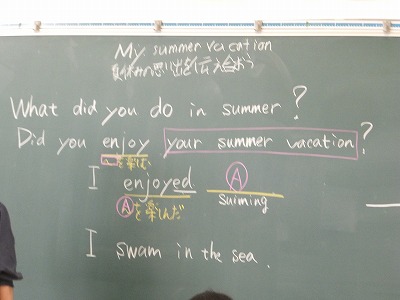 My summer vacation
夏休みの思い出を伝え合おう
What did you do in summer?
Did you enjoy your summer vacation?
を楽しむ
I enjoyed Ⓐ
Ⓐを楽しんだ
Suiming
I swam in the sea.